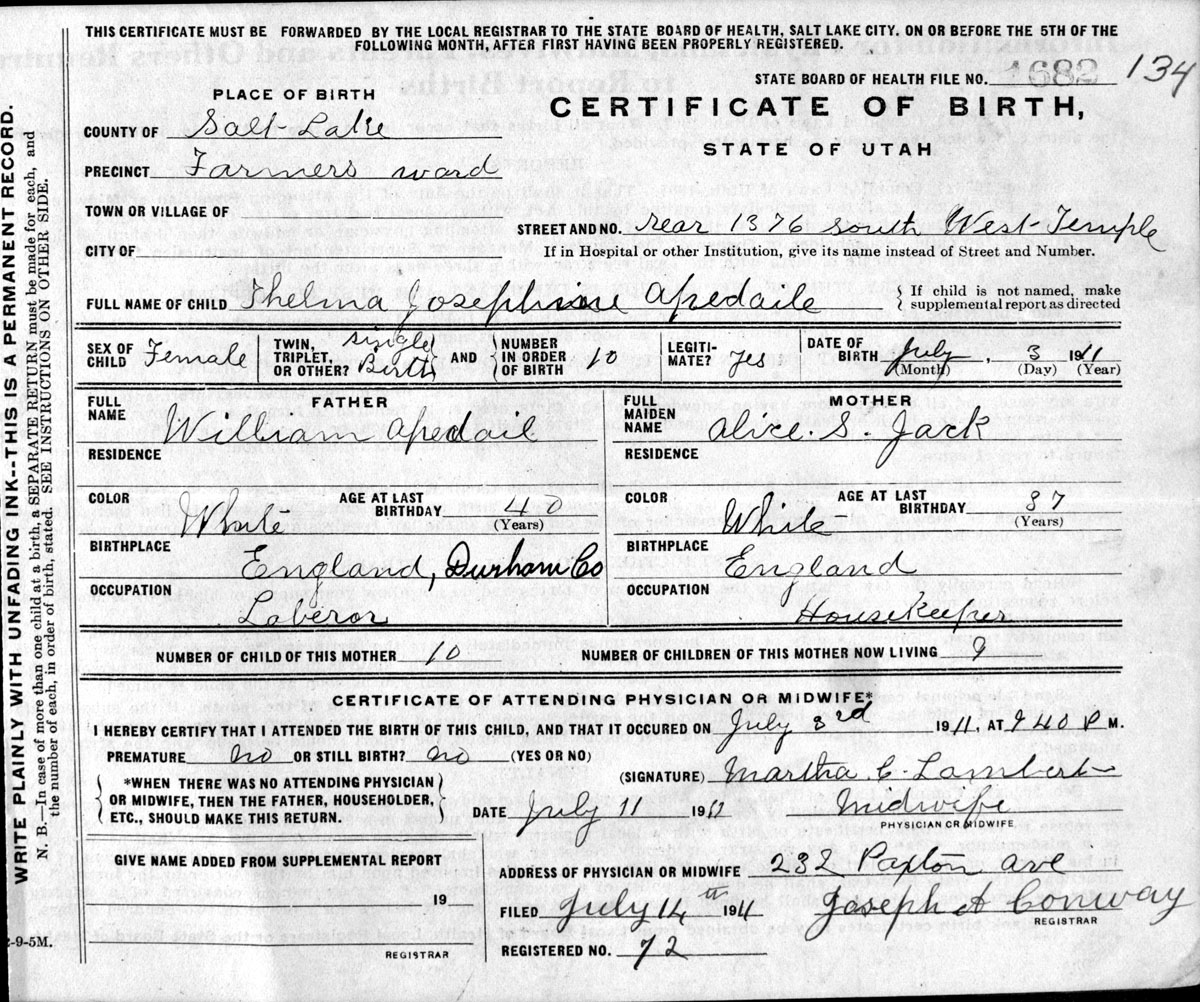 THIS CERTIFICATE MUST BE FORWARDED BY THE LOCAL REGISTRAR TO THE STATE BOARD OF HEALTH, SALT LAKE CITY. ON OR BEFORE THE 5TH OF THE
FOLLOWING MONTH, AFTER FIRST HAVING BEEN PROPERLY REGISTERED.
STATE BOARD OF HEALTH FILE NO. 1682 134
PLACE OF BIRTH
CERTIFICATE OF BIRTH,
STATE OF UTAH
COUNTY OF Salt Lake
PRECINCT Farmers ward
TOWN OR VILLAGE OF
STREET AND NO. rear 1376 South West Temple
CITY OF
If in Hospital or other Institution, give its name instead of Street and Number.
FULL NAME OF CHILD Thelma Josephine Apedaile
If child is not named, make
supplemental report as directed
SEX OF CHILD Female
TWIN, TRIPLET, OR OTHER? Single Birth
AND
NUMBER IN ORDER OF BIRTH 10
LEGITI-MATE? Yes
DATE OF BIRTH July, 3 1911
(Month) (Day) (Year)
FATHER
FULL NAME William Apedail
RESIDENCE
COLOR White
AGE AT LAST BIRTHDAY 40
(Years)
BIRTHPLACE England, Durham Co
OCCUPATION Laberor
MOTHER
FULL MAIDEN NAME Alice. S. Jack
RESIDENCE
COLOR White
AGE AT LAST BIRTHDAY 37
(Years)
BIRTHPLACE England
OCCUPATION Housekeeper
NUMBER OF CHILD OF THIS MOTHER 10 NUMBER OF CHILDREN OF THIS MOTHER NOW LIVING 9
CERTIFICATE OF ATTENDING PHYSICIAN OR MIDWIFE*
I HEREBY CERTIFY THAT I ATTENDED THE BIRTH OF THIS CHILD, AND THAT IT OCCURED ON July 3rd 1911, AT 9 40 P M.
PREMATURE no OR STILL BIRTH? no (YES OR NO)
*WHEN THERE WAS NO ATTENDING PHYSICIAN
OR MIDWIFE, THEN THE FATHER, HOUSEHOLDER,
ETC., SHOULD MAKE THIS RETURN.
(SIGNATURE) Martha C. Lambert
DATE July 11 1911 Midwife
PHYSICIAN OR MIDWIFE
GIVE NAME ADDED FROM SUPPLEMENTAL REPORT
19
REGISTRAR
ADDRESS OF PHYSICIAN OR MIDWIFE 232 Paxton ave
FILED July 14th 1911 Joseph A Conway
REGISTRAR
REGISTERED NO. 72
WRITE PLAINLY WITH UNFADING INK--THIS IS A PERMANENT RECORD.
N. B.—In case of more than one child at a birth, a SEPARATE RETURN must be made for each, and
the number of each, in order of birth, stated. SEE INSTRUCTIONS ON OTHER SIDE.
2-9-5M.